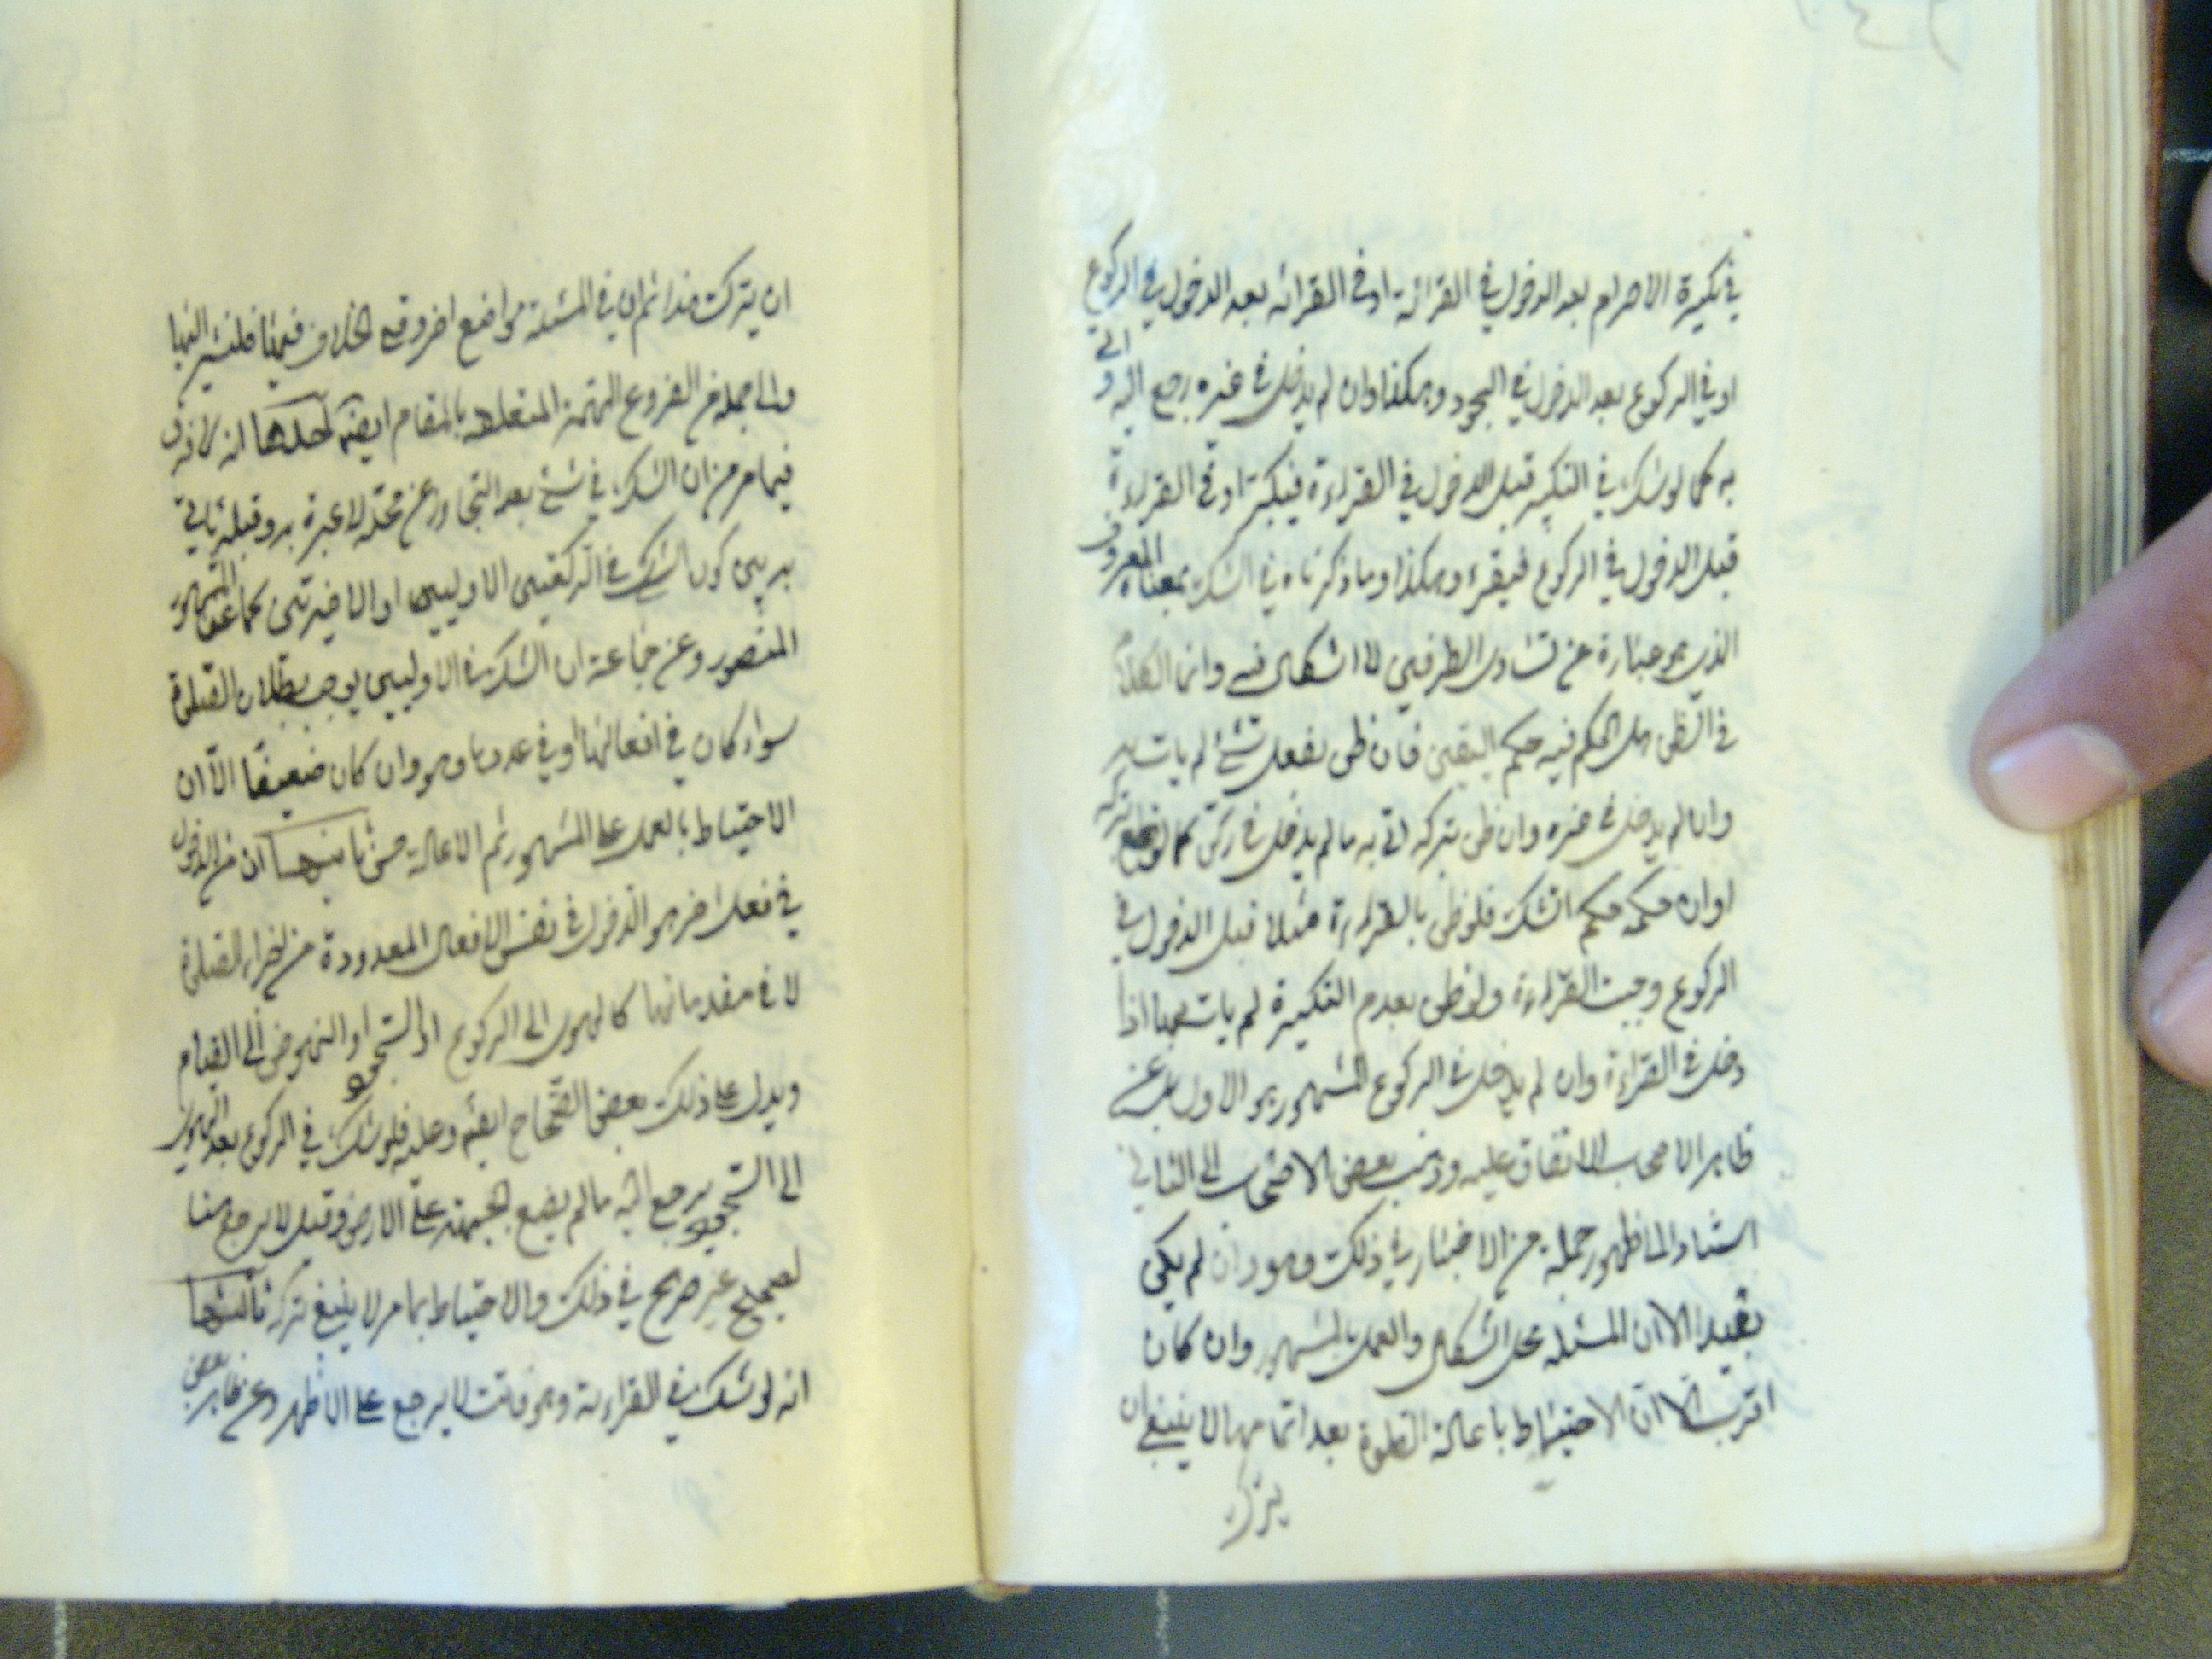 في تكبيرة الاحرام بعد الدخول في القرائة او في القرائه بعد الدخول في الركوع
او في الركوع بعد الدخول في السجود وهكذا وان لم يدخل في غيره رجع اليه و اتى
به كما لو شك في التكبير قبل الدخول في القراءة فيكبر او في القراءة
قبل الدخول في الركوع فيقرء وهكذا وما ذكرناه في الشك بمعناه المعروف
الذي هو عبارة عن تساوى الطرفين لا اشكال فيه وانما الكلام
في الظن هل الحكم فيه حكم اليقين فان ظن بفعل شئ لم يات به
وان لم يدخل في غيره وان ظن بتركه اتى به ما لم يدخل في ركن كما لو تركه
او ان حكمه حكم الشك فلو ظن بالقراءة مثلا قبل الدخول في
الركوع وجبت القراءة ولو ظن بعدم التكبيرة لم يات بها اذا
دخل في القراءة وان لم يدخل في الركوع المشهور هو الاول بل عن
ظاهر الاصحاب الاتفاق عليه وذهب بعض الاصحاب الى الثاني
استنادا لظهور جملة من الاخبار في ذلك وهو وان لم يكن
بعيدا الا ان المسئله محل اشكال والعمل بالمشهور وان كان
اقرب الا ان الاحتياط باعادة الصلوة بعد اتمامها لا ينبغي ان
يترك
ان يترك هذا ثم ان في المسئلة مواضع اخر وقع الخلاف فيها فلنشر اليها
والى جملة من الفروع المهمة المتعلقة بالمقام ايضا احدها انه لا فرق
فيما مر من ان الشك في شئ بعد التجاوز عن محله لا عبرة به وقبله ياتي
به بين كون الشك في الركعتين الاوليين او الاخيرتين كما هو المشهور
المنصور وعن جماعة ان الشك في الاوليين يوجب بطلان الصلوة
سواء كان في افعالهما او في عددهما وهو وان كان ضعيفا الا ان
الاحتياط بالعمل على المشهور ثم الاعادة حسن ثانيها ان الدخول
في فعل اخر هو الدخول في نفس الافعال المعدودة من اجزاء الصلوة
لا في مقدماتها كالهوى الى الركوع او السجود او النهوض الى القيام
ويدل على ذلك بعض الصحاح ايضا وعليه فلو شك في الركوع بعد الهوى
الى السجود يرجع اليه ما لم يضع الجبهة على الارض وقيل لا يرجع هنا
لصحيح غير صريح في ذلك والاحتياط بما مر لا ينبغي تركه ثالثها
انه لو شك في القراءة وهو قانت لا يرجع على الاظهر وعن ظاهر بعض